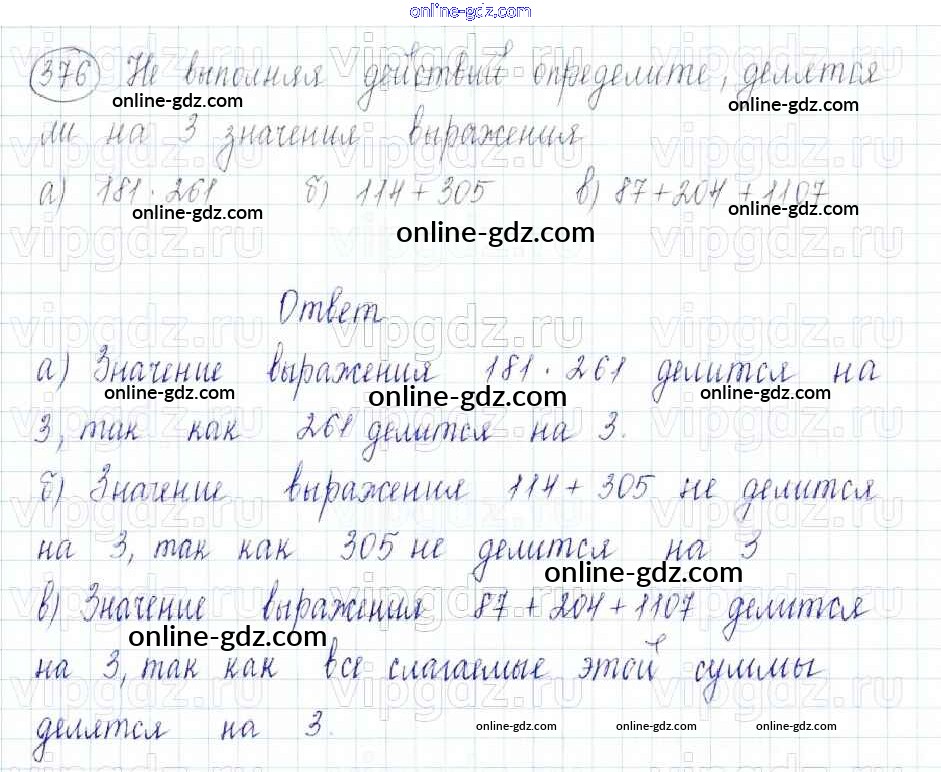 online-gdz.com
376 Не выполняя действий определите, делятся
online-gdz.com online-gdz.com
ли на 3 значения выражения
а) 181 · 261 б) 114 + 305 в) 87 + 204 + 1107
online-gdz.com online-gdz.com
online-gdz.com
vipgdz.ru vipgdz.ru vipgdz.ru
Ответ
а) Значение выражения 181 · 261 делится на
online-gdz.com online-gdz.com online-gdz.com
3, так как 261 делится на 3.
б) Значение выражения 114 + 305 не делится
на 3, так как 305 не делится на 3
online-gdz.com
в) Значение выражения 87 + 204 + 1107 делится
online-gdz.com
на 3, так как все слагаемые этой суммы
делятся на 3.
online-gdz.com online-gdz.com online-gdz.com